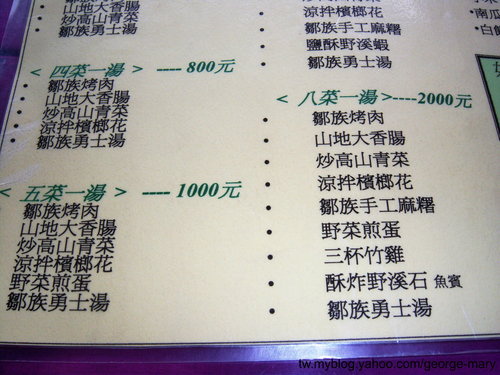 山地大香腸
炒高山青菜
鄒族勇士湯
< 四菜一湯 > ---- 800元
鄒族烤肉
山地大香腸
炒高山青菜
涼拌檳榔花
鄒族勇士湯
< 五菜一湯 > ---- 1000元
鄒族烤肉
山地大香腸
炒高山青菜
涼拌檳榔花
野菜煎蛋
鄒族勇士湯
涼拌檳榔花
鄒族手工麻糬
鹽酥野溪蝦
鄒族勇士湯
< 八菜一湯 >----2000元
鄒族烤肉
山地大香腸
炒高山青菜
涼拌檳榔花
鄒族手工麻糬
野菜煎蛋
三杯竹雞
酥炸野溪石魚賓
鄒族勇士湯
南瓜
白飯
tw.myblog.yahoo.com/george-mary